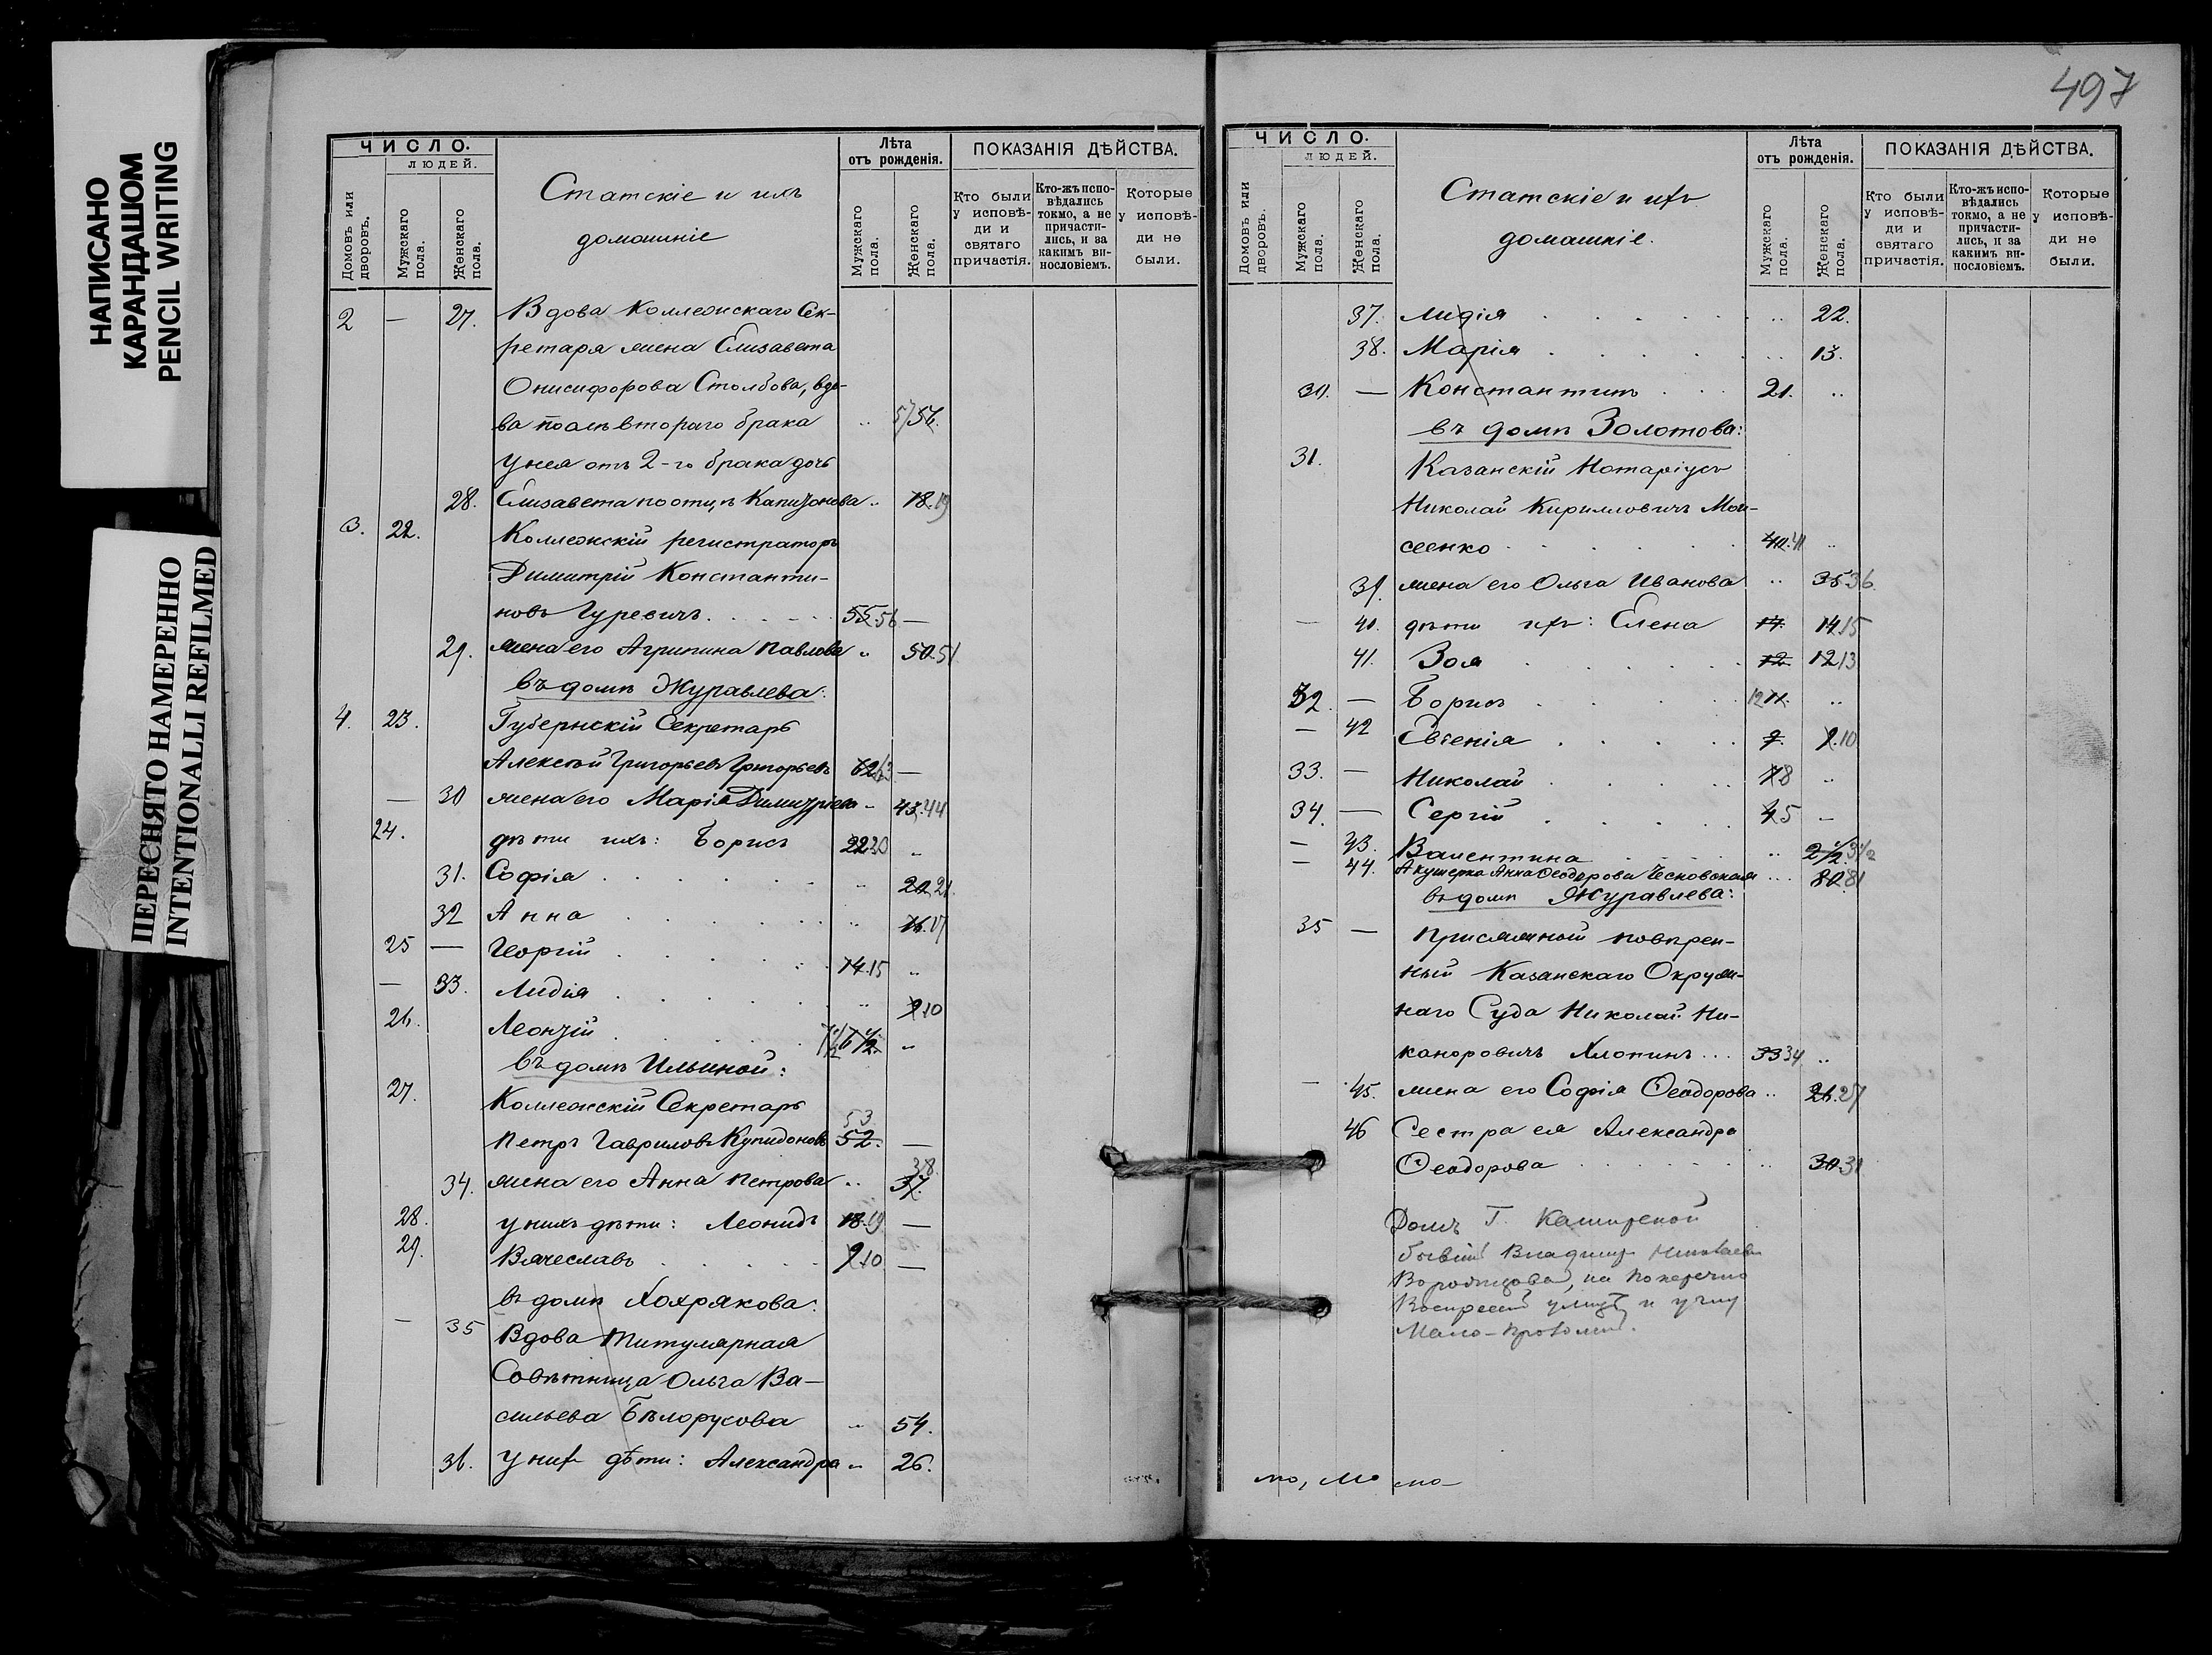 НАПИСАНО
КАРАНДАШОМ
PENCIL WRITING
ПЕРЕСНЯТО НАМЕРЕННО
INTENTIONALLI REFILMED
ЧИСЛО.
ЛЮДЕЙ.
Домовъ или дворовъ.
Мужскаго пола.
Женскаго пола.
Статскіе и ихъ
домашніе
Лѣта
отъ рожденія.
Мужскаго пола.
Женскаго пола.
ПОКАЗАНІЯ ДѢЙСТВА.
Кто были у исповѣ-ди и святаго причастія.
Кто-жъ испо-вѣдались токмо, а не причасти-лись, и за какимъ ви-нословіемъ.
Которые у исповѣ-ди не были.
2 — 27. Вдова Коллежскаго Сек-
ретаря жена Елизавета
Онисифорова Столбова, вдо-
ва послѣ втораго брака .. 57 56.
у нея отъ 2-го брака дочь
28. Елизавета по отцѣ Капитонова .. 18. 19
3. 22. Коллежскій регистраторъ
Димитрій Константи-
новъ Гуревичъ 55 56 —
29. жена его Агрипина Павлова .. 50. 51
въ домѣ Журавлева:
4. 23. Губернскій Секретарь
Алексѣй Григорьевъ Григорьевъ 62 63 —
— 30 жена его Марія Димитріева - 43. 44
24. дѣти ихъ: Борисъ 22 23 ..
31. Софія .. 20 21.
32 Анна .. 16. 17
25 — Георгій 14. 15 ..
— 33. Лидія .. 9 10
26. Леонтій 7 1/2 6 1/2. ..
въ домѣ Ильиной:
27. Коллежскій Секретарь
Петръ Гавриловъ Купидоновъ 53 52. —
34. жена его Анна Петрова .. 38. 37.
28. у нихъ дѣти: Леонидъ 18. 19 —
29. Вячеславъ 9. 10 —
въ домѣ Хохрякова:
— 35 Вдова Титулярная
Совѣтница Ольга Ва-
сильева Бѣлорусова .. 54.
36. у них дѣти: Александра .. 26.
497
ЧИСЛО.
ЛЮДЕЙ.
Домовъ или дворовъ.
Мужскаго пола.
Женскаго пола.
Статскіе и ихъ
домашніе.
Лѣта
отъ рожденія.
Мужскаго пола.
Женскаго пола.
ПОКАЗАНІЯ ДѢЙСТВА.
Кто были у исповѣ-ди и святаго причастія.
Кто-жъ испо-вѣдались токмо, а не причасти-лись, и за какимъ ви-нословіемъ.
Которые у исповѣ-ди не были.
37. Лидія .. 22.
38. Марія .. 13.
30. — Константинъ 21. ..
въ домѣ Золотова:
31. Казанскій Нотаріусъ
Николай Кирилловичъ Мои-
сеенко 40. 41 ..
39. жена его Ольга Иванова .. 35 36
— 40. дѣти ихъ: Елена 14. 14. 15
41. Зоя 12. 12 13
32. — Борисъ 12 11. ..
— 42 Евгенія 9. 9. 10
33. — Николай 7 8 ..
34. — Сергій 4 5 —
— 43. Валентина .. 2 1/2. 3 1/2
— 44. Акушерка Анна Ѳеодорова Чесновская ... 80. 81
въ домѣ Журавлева:
35 — Присяжной повѣрен-
ный Казанскаго Окруж-
наго Суда Николай Ни-
каноровичъ Хлопинъ 33 34 ..
— 45. жена его Софія Ѳеодорова .. 26. 27
46 Сестра ея Александра
Ѳеодорова .. 30 31
Домъ Г.
бывшій Владимір Николаев
на поперечно
улицѣ и углу
Мало-